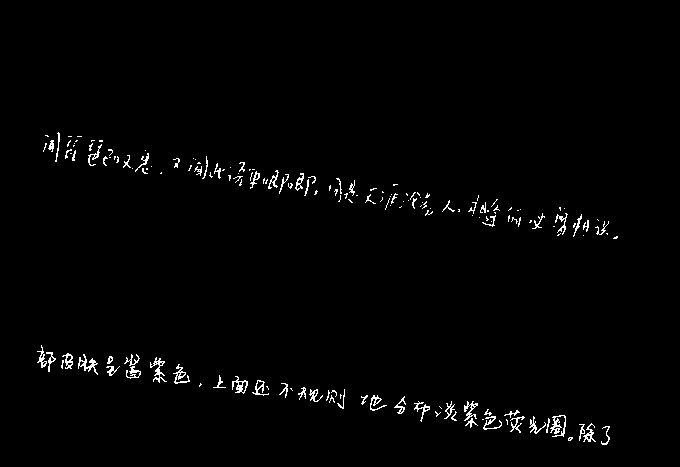 闻琵琶已叹息，又闻此语重唧唧。同是天涯沦落人，相逢何必曾相识。
部皮肤呈酱紫色，上面还不规则地分布淡紫色荧光圈。除了